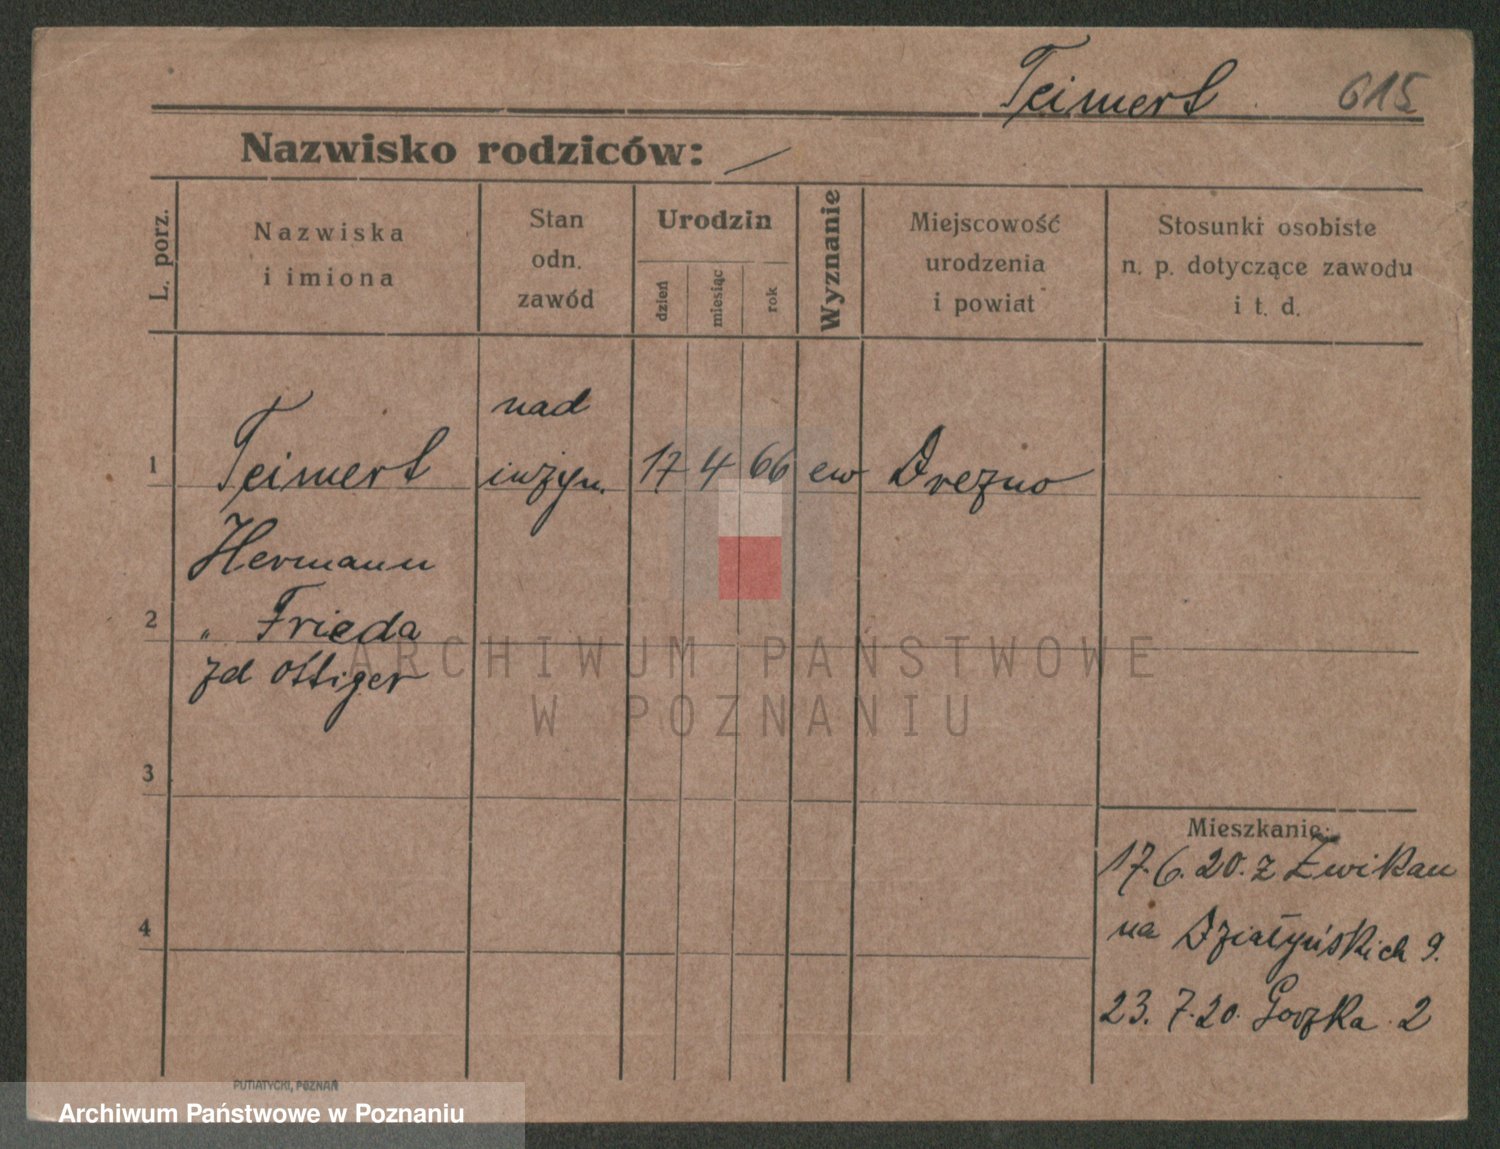 Teimert 615
Nazwisko rodziców: /
L. porz.
Nazwiska
i imiona
Stan
odn.
zawód
Urodzin
dzień
miesiąc
rok
Wyznanie
Miejscowość
urodzenia
i powiat
Stosunki osobiste
n. p. dotyczące zawodu
i t. d.
nad
1 Teimert inżyn. 17 4 66 ew Drezno
Hermann
2 " Frieda
zd Ottiger
3
4
Mieszkanie:
17.6.20. z Zwikau
na Działyńskich 9.
23.7.20. Gorzka 2
PUTIATYCKI, POZNAŃ
ARCHIWUM PAŃSTWOWE
W POZNANIU
Archiwum Państwowe w Poznaniu